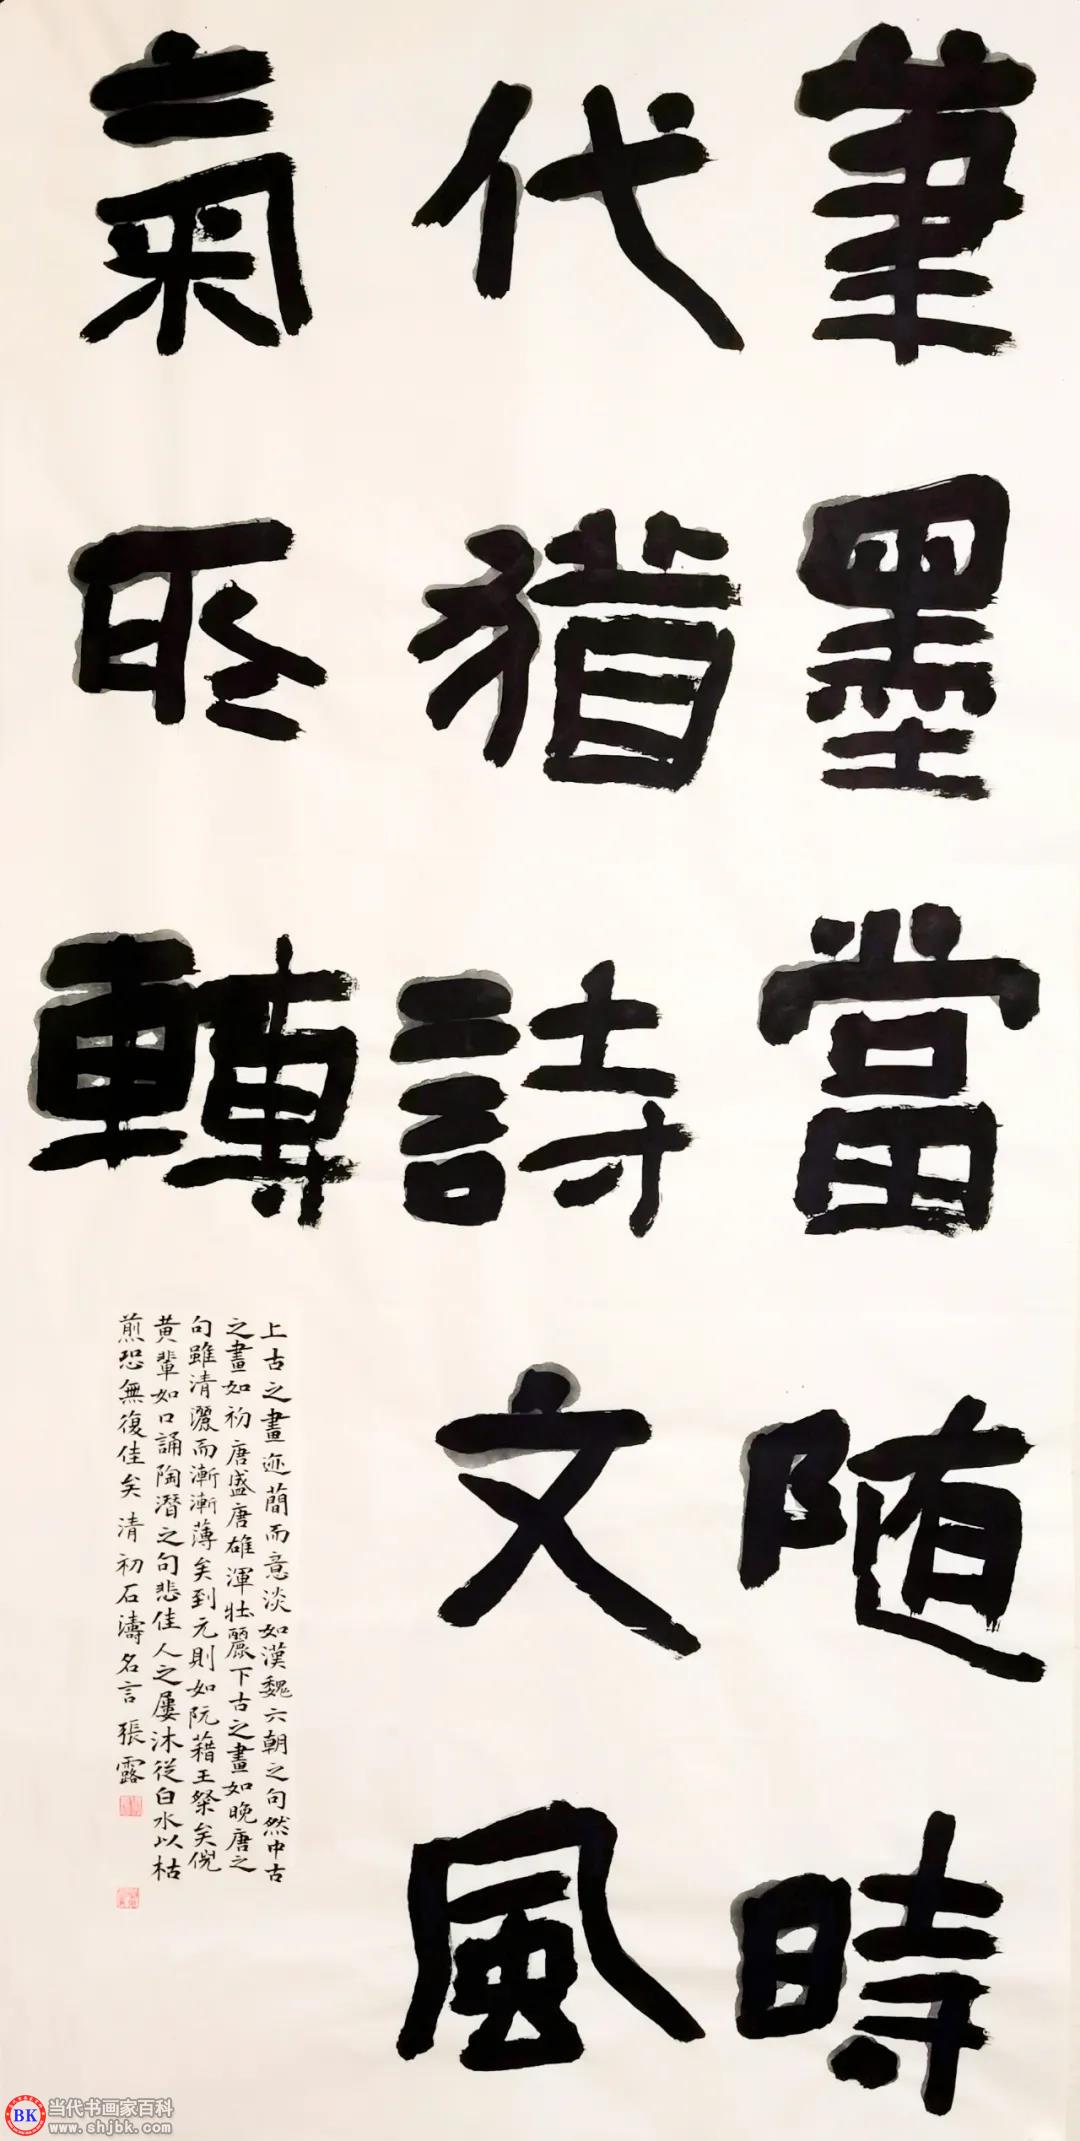 筆墨當随時
代猶詩文風
氣所轉
上古之畫迹簡而意淡如漢魏六朝之句然中古
之畫如初唐盛唐雄渾壯麗下古之畫如晚唐之
句雖清灑而漸漸薄矣到元則如阮藉王粲矣倪
黄輩如口誦陶潛之句悲佳人之屢沐從白水以枯
煎恐無復佳矣 清初石濤名言 張露
BK 当代书画家百科
www.shjbk.com